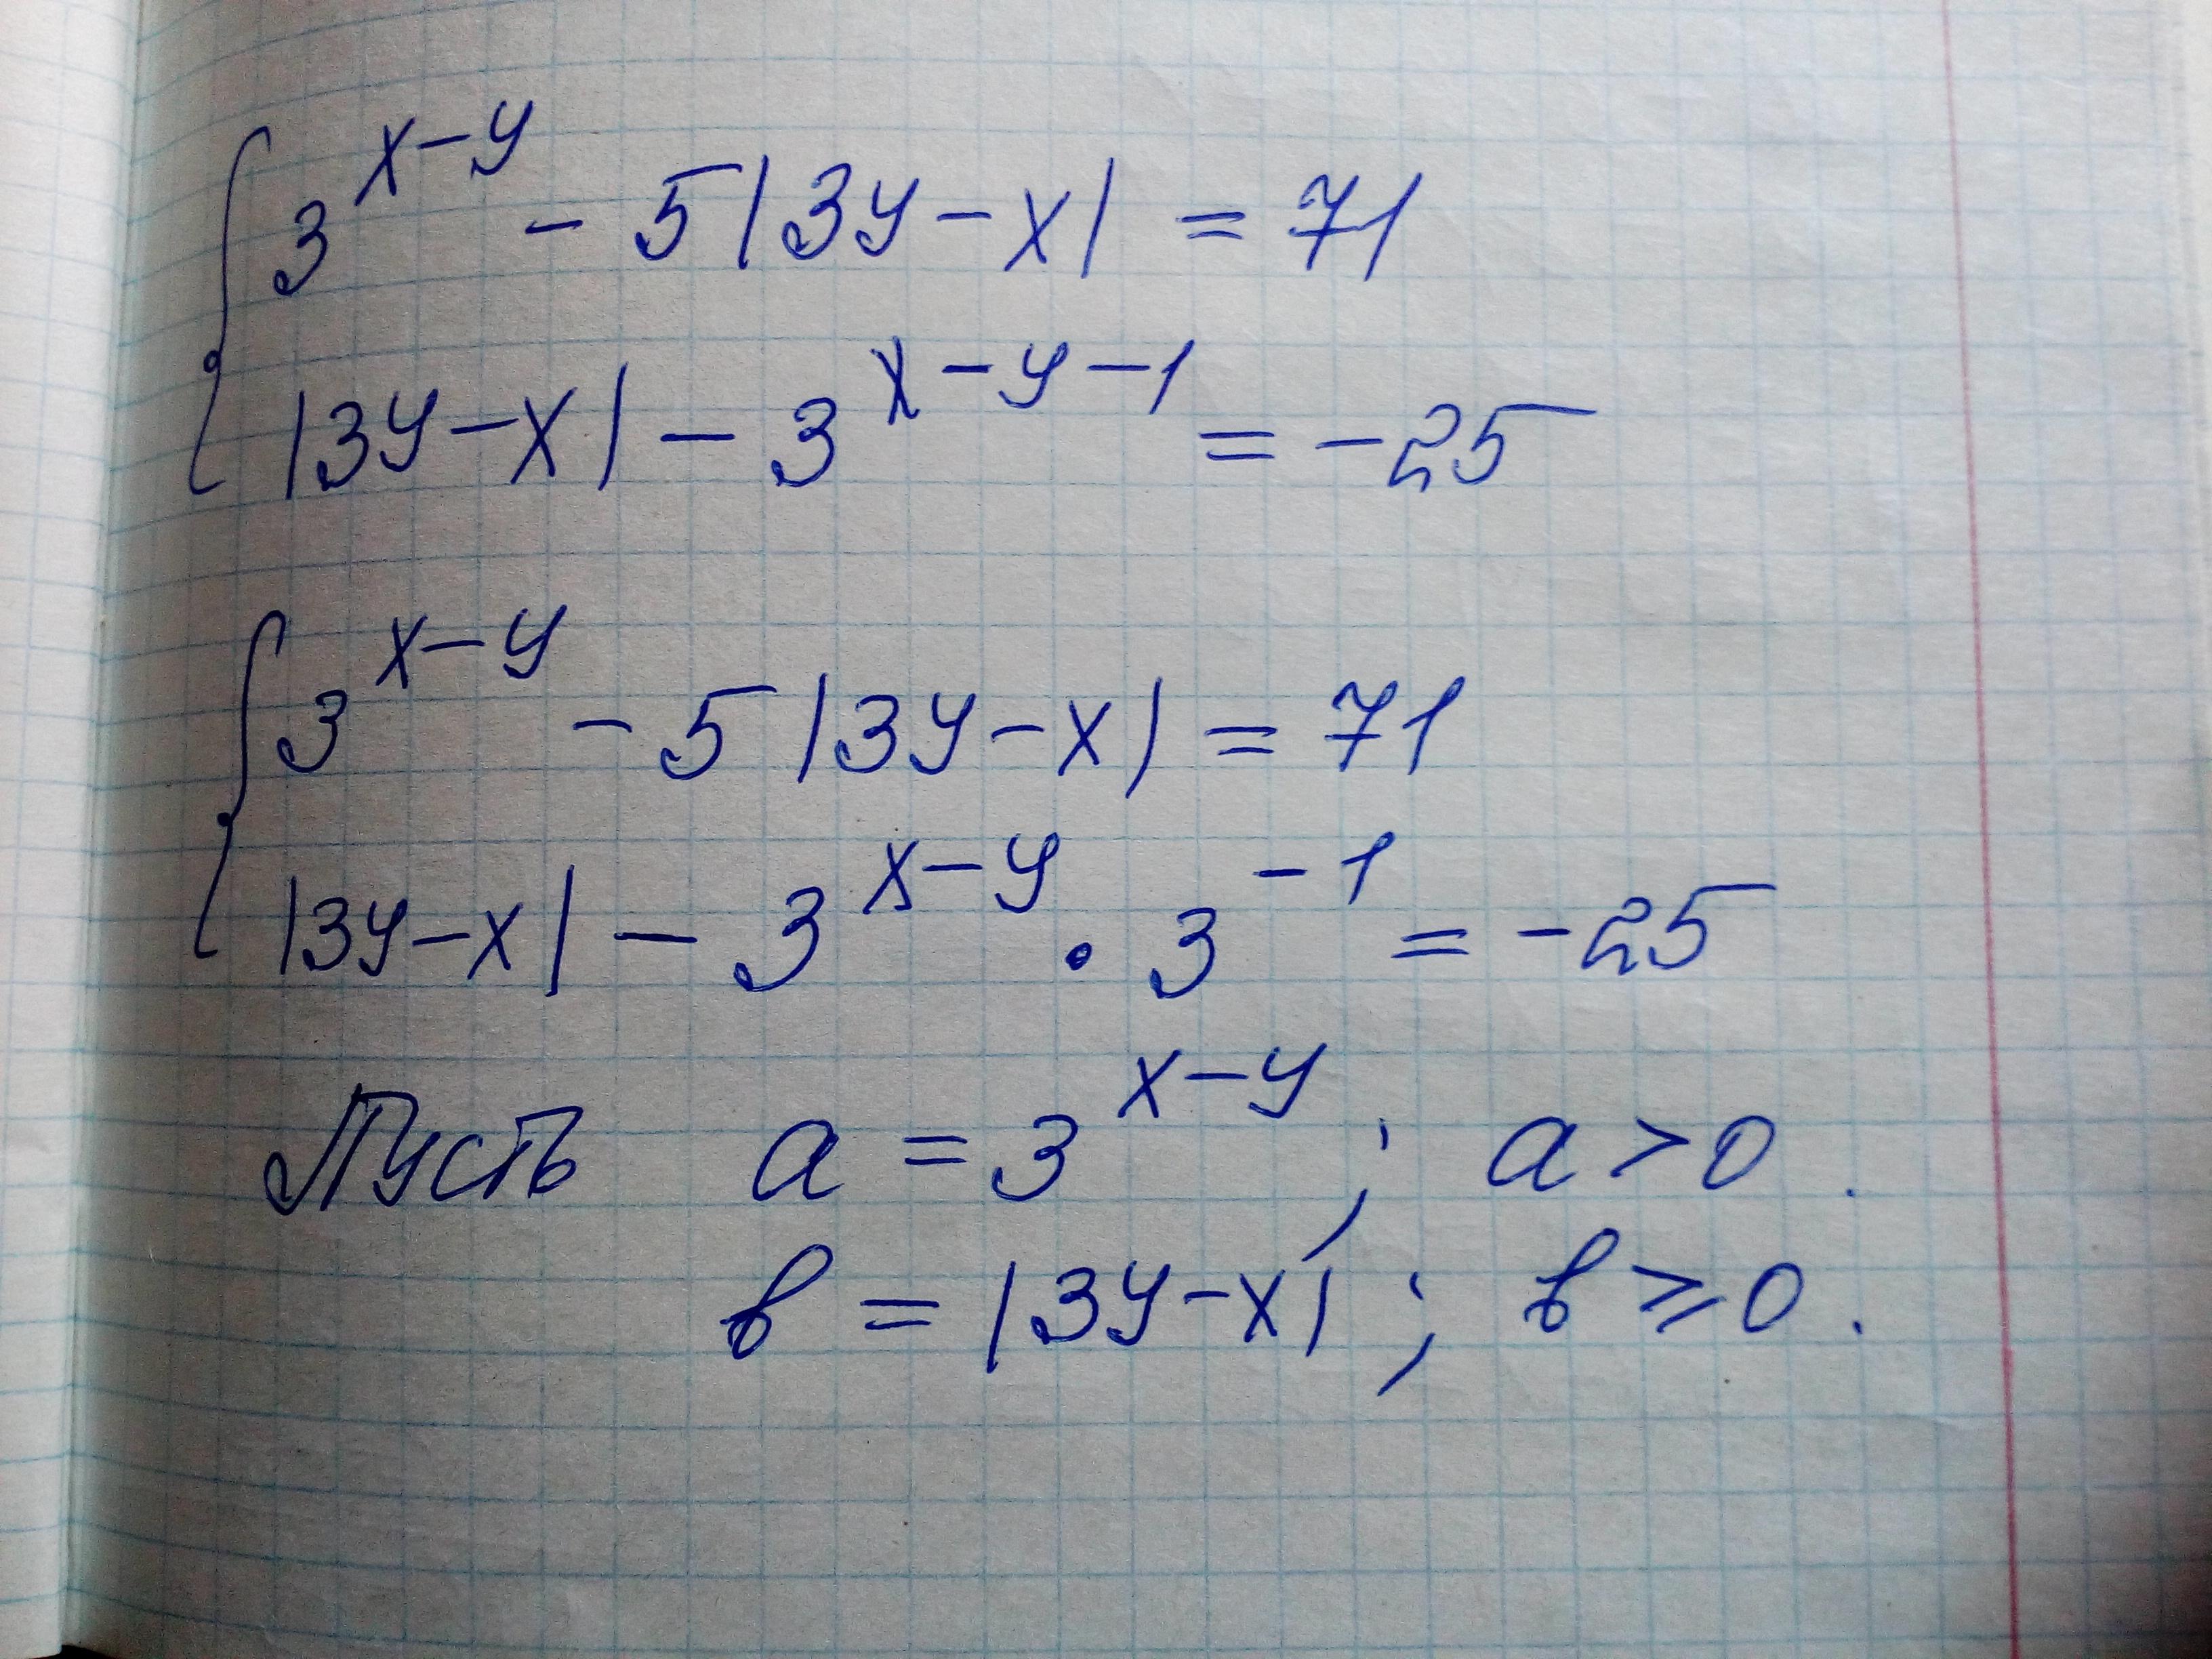 3^{x-y} - 5|3y-x| = 71
|3y-x| - 3^{x-y-1} = -25
3^{x-y} - 5|3y-x| = 71
|3y-x| - 3^{x-y} · 3^{-1} = -25
Пусть a = 3^{x-y}; a > 0.
в = |3y-x|; в ⩾ 0.